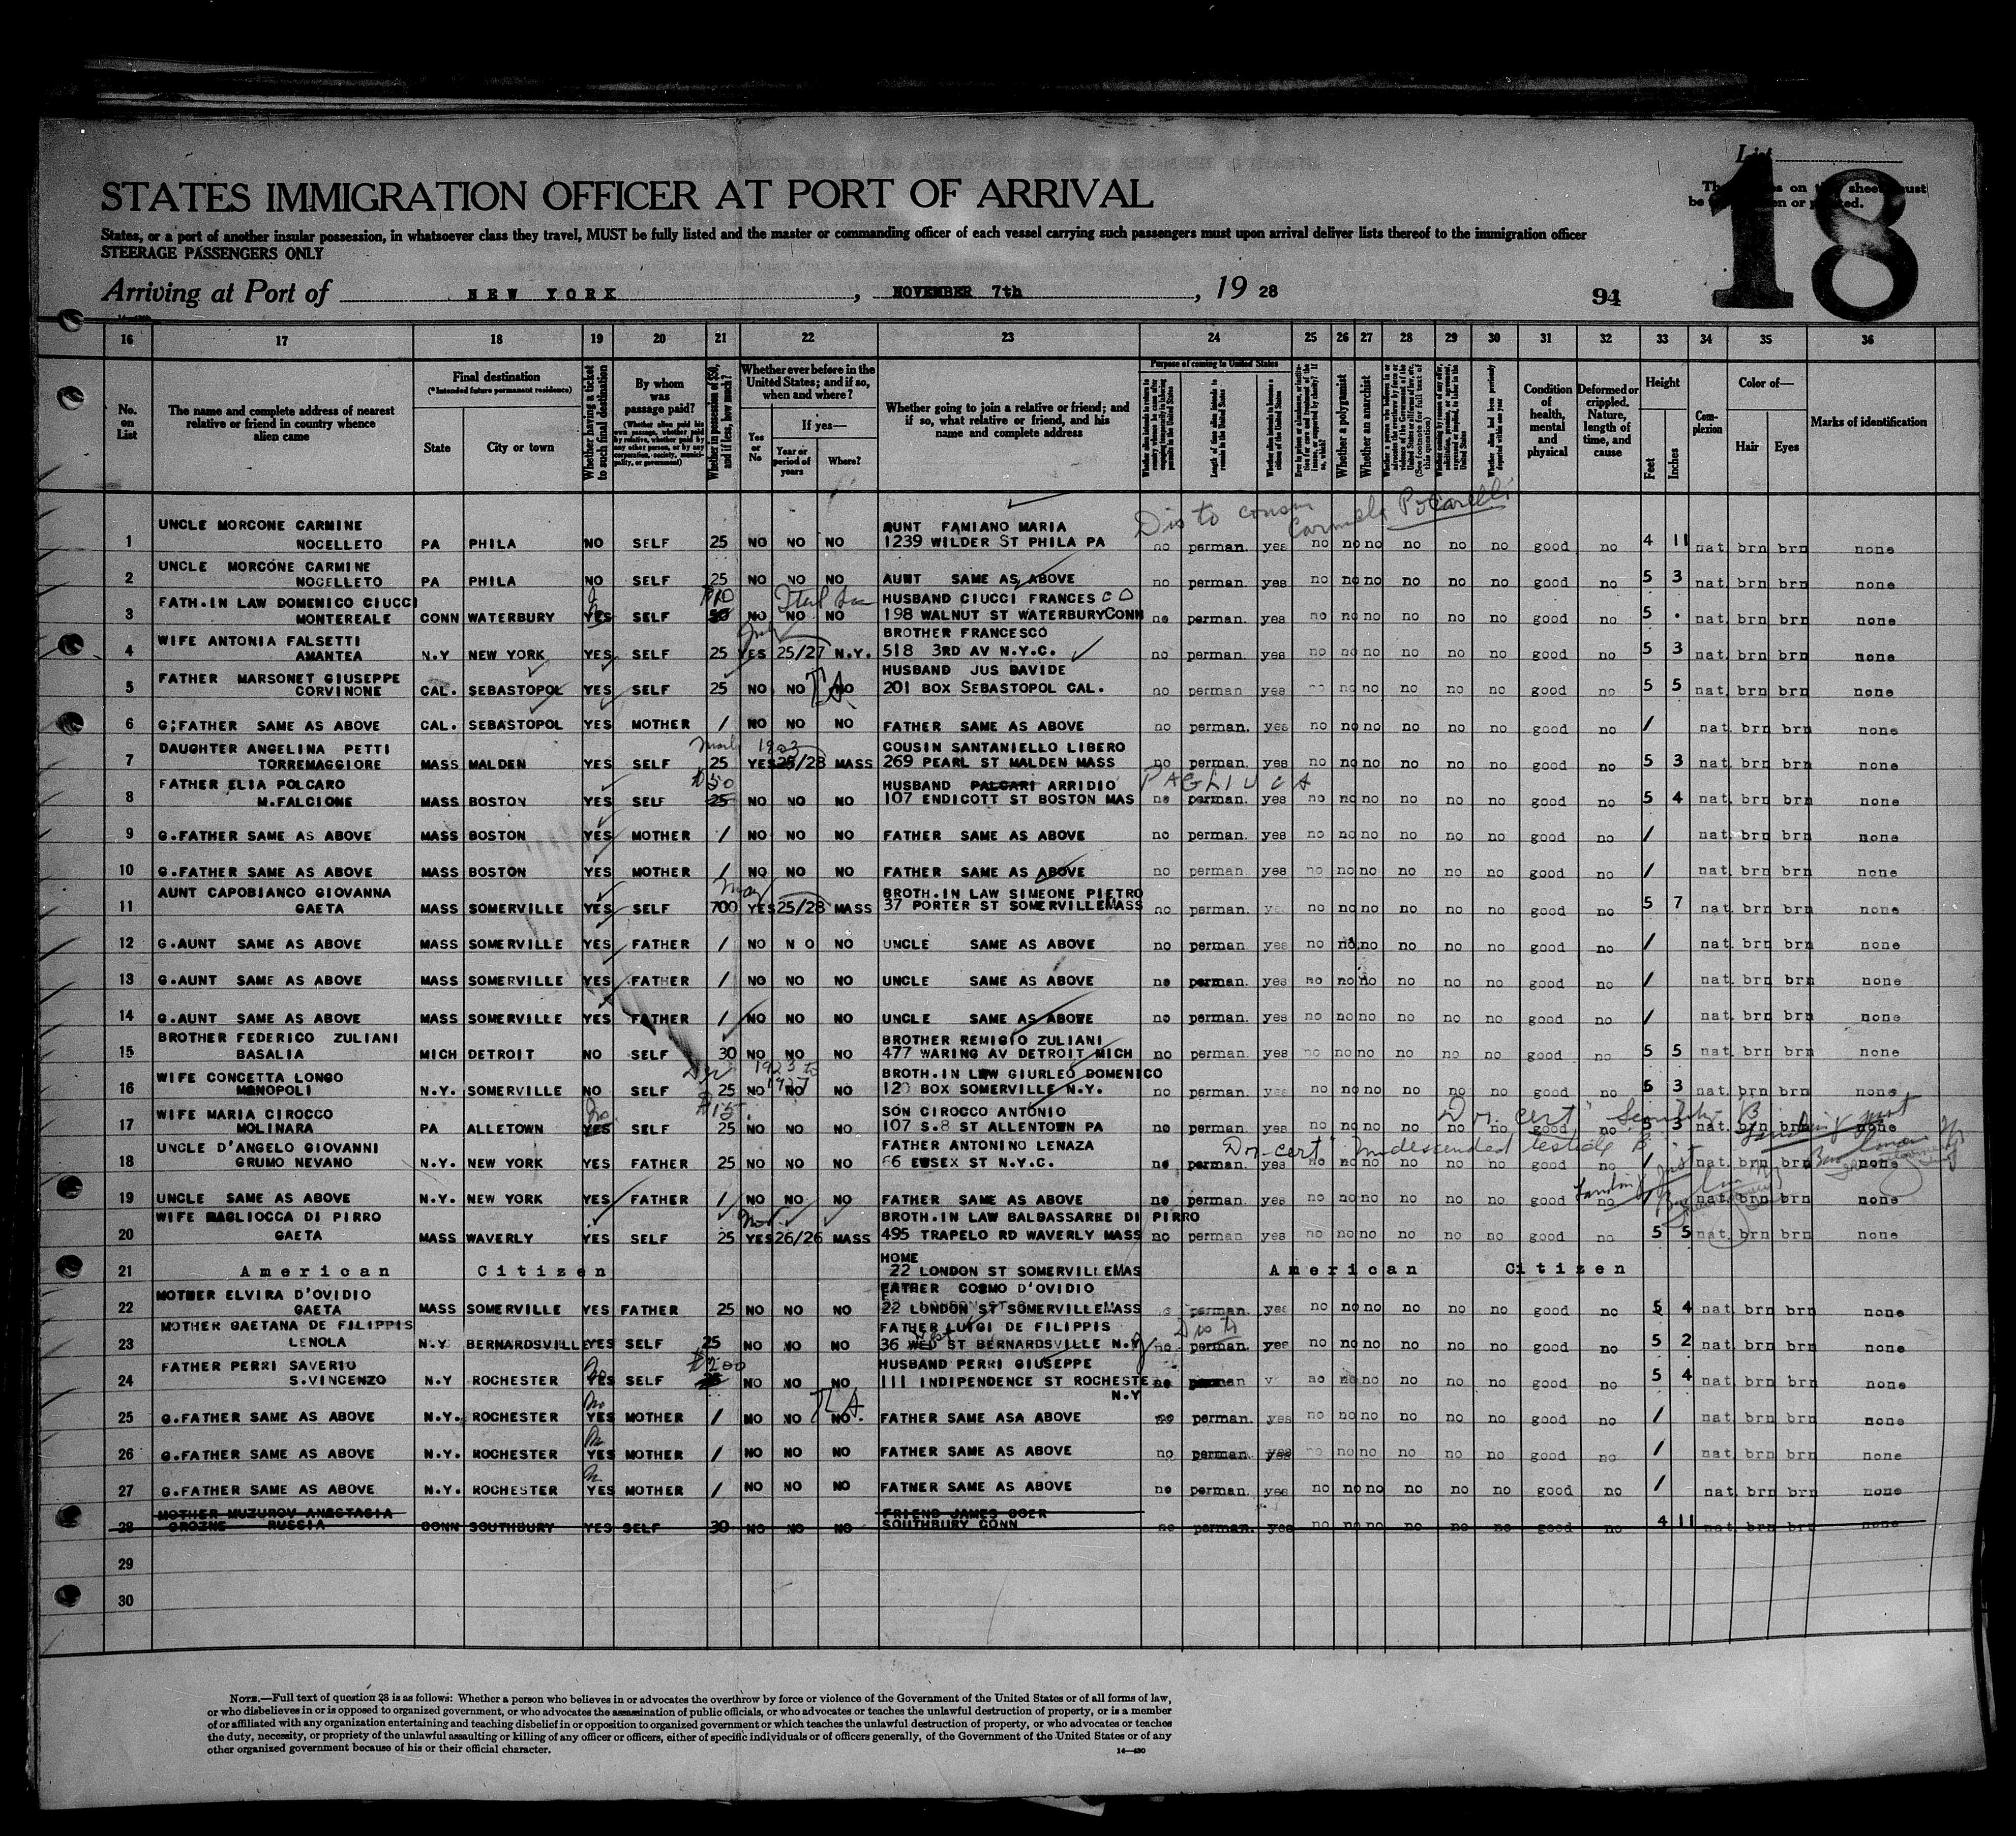 List
18
The entries on this sheet must
be typewritten or printed.
STATES IMMIGRATION OFFICER AT PORT OF ARRIVAL
States, or a port of another insular possession, in whatsoever class they travel, MUST be fully listed and the master or commanding officer of each vessel carrying such passengers must upon arrival deliver lists thereof to the immigration officer
STEERAGE PASSENGERS ONLY
Arriving at Port of NEW YORK, NOVEMBER 7th, 19 28
94
16 17 18 19 20 21 22 23 24 25 26 27 28 29 30 31 32 33 34 35 36
No. on List
The name and complete address of nearest relative or friend in country whence alien came
Final destination
(*Intended future permanent residence)
State City or town
Whether having a ticket to such final destination
By whom was passage paid?
Whether in possession of $50, and if less, how much?
Whether ever before in the United States; and if so, when and where?
Yes or No
If yes—
Year or period of years
Where?
Whether going to join a relative or friend; and if so, what relative or friend, and his name and complete address
Purpose of coming to United States
Length of time alien intends to remain in the United States
Whether alien intends to become a citizen of the United States
Whether a polygamist
Whether an anarchist
Condition of health, mental and physical
Deformed or crippled. Nature, length of time, and cause
Height
Feet Inches
Complexion
Color of—
Hair Eyes
Marks of identification
Dis to cousin Carmela
UNCLE MORCONE CARMINE AUNT FAMIANO MARIA
1 NOCELLETO PA PHILA NO SELF 25 NO NO NO 1239 WILDER ST PHILA PA no perman. yes no no no no no no good no 4 11 nat. brn brn none
UNCLE MORCONE CARMINE
2 NOCELLETO PA PHILA NO SELF 25 NO NO NO AUNT SAME AS ABOVE no perman. yes no no no no no no good no 5 3 nat. brn brn none
FATH.IN LAW DOMENICO CIUCCI $10 HUSBAND CIUCCI FRANCESCO
3 MONTEREALE CONN WATERBURY YES SELF 50 NO NO NO 198 WALNUT ST WATERBURY CONN no perman. yes no no no no no no good no 5 . nat. brn brn none
WIFE ANTONIA FALSETTI BROTHER FRANCESCO
4 AMANTEA N.Y NEW YORK YES SELF 25 YES 25/27 N.Y. 518 3RD AV N.Y.C. no perman. yes no no no no no no good no 5 3 nat. brn brn none
FATHER MARSONET GIUSEPPE HUSBAND JUS DAVIDE
5 CORVINONE CAL. SEBASTOPOL YES SELF 25 NO NO NO 201 BOX SEBASTOPOL CAL. no perman yes no no no no no no good no 5 5 nat. brn brn none
6 G;FATHER SAME AS ABOVE CAL. SEBASTOPOL YES MOTHER / NO NO NO FATHER SAME AS ABOVE no perman. yes no no no no no no good no / nat. brn brn none
DAUGHTER ANGELINA PETTI 1923 COUSIN SANTANIELLO LIBERO
7 TORREMAGGIORE MASS MALDEN YES SELF 25 YES 25/28 MASS 269 PEARL ST MALDEN MASS no perman. yes no no no no no no good no 5 3 nat. brn brn none
FATHER ELIA POLCARO $50 HUSBAND PALCARI ARRIDIO PAGLIUCA
8 M.FALCIONE MASS BOSTON YES SELF 25 NO NO NO 107 ENDICOTT ST BOSTON MAS no perman. yes no no no no no no good no 5 4 nat. brn brn none
9 G.FATHER SAME AS ABOVE MASS BOSTON YES MOTHER / NO NO NO FATHER SAME AS ABOVE no perman. yes no no no no no no good no / nat. brn brn none
10 G.FATHER SAME AS ABOVE MASS BOSTON YES MOTHER / NO NO NO FATHER SAME AS ABOVE no perman yes no no no no no no good no / nat. brn brn none
AUNT CAPOBIANCO GIOVANNA May BROTH.IN LAW SIMEONE PIETRO
11 GAETA MASS SOMERVILLE YES SELF 700 YES 25/28 MASS 37 PORTER ST SOMERVILLE MASS no perman. yes no no no no no no good no 5 7 nat. brn brn none
12 G.AUNT SAME AS ABOVE MASS SOMERVILLE YES FATHER / NO N O NO UNCLE SAME AS ABOVE no perman yes no no no no no no good no / nat. brn brn none
13 G.AUNT SAME AS ABOVE MASS SOMERVILLE YES FATHER / NO NO NO UNCLE SAME AS ABOVE no perman. yes no no no no no no good no / nat. brn brn none
14 G.AUNT SAME AS ABOVE MASS SOMERVILLE YES FATHER / NO NO NO UNCLE SAME AS ABOVE no perman. yes no no no no no no good no / nat. brn brn none
BROTHER FEDERICO ZULIANI BROTHER REMIGIO ZULIANI
15 BASALIA MICH DETROIT NO SELF 30 NO NO NO 477 WARING AV DETROIT MICH no perman. yes no no no no no no good no 5 5 nat. brn brn none
WIFE CONCETTA LONGO 1923 to 1927 BROTH.IN LEW GIURLEO DOMENICO
16 MONOPOLI N.Y. SOMERVILLE NO SELF 25 NO NO NO 120 BOX SOMERVILLE N.Y. no perman. yes no no no no no no good no 5 3 nat. brn brn none
WIFE MARIA CIROCCO No $15. SON CIROCCO ANTONIO Dr. cert. Senility
17 MOLINARA PA ALLETOWN YES SELF 25 NO NO NO 107 S.8 ST ALLENTOWN PA no perman. yes no no no no no no good no 5 3 nat. brn brn none
UNCLE D'ANGELO GIOVANNI FATHER ANTONINO LENAZA Dr. cert. Undescended testicle
18 GRUMO NEVANO N.Y. NEW YORK YES FATHER 25 NO NO NO 66 ESSEX ST N.Y.C. no perman. yes no no no no no no good no / nat. brn brn none
19 UNCLE SAME AS ABOVE N.Y. NEW YORK YES FATHER / NO NO NO FATHER SAME AS ABOVE no perman. yes no no no no no no good no / nat. brn brn none
WIFE MAGLIOCCA DI PIRRO Nov. BROTH.IN LAW BALDASSARRE DI PIRRO
20 GAETA MASS WAVERLY YES SELF 25 YES 26/26 MASS 495 TRAPELO RD WAVERLY MASS no perman yes no no no no no no good no 5 5 nat. brn brn none
HOME
21 American Citizen 22 LONDON ST SOMERVILLE MAS American Citizen
MOTHER ELVIRA D'OVIDIO FATHER COSMO D'OVIDIO
22 GAETA MASS SOMERVILLE YES FATHER 25 NO NO NO 22 LONDON ST SOMERVILLE MASS perman. yes no no no no no no good no 5 4 nat. brn brn none
MOTHER GAETANA DE FILIPPIS FATHER LUIGI DE FILIPPIS Dis to
23 LENOLA N.Y. BERNARDSVILLE YES SELF 25 NO NO NO 36 WED ST BERNARDSVILLE N. no perman. yes no no no no no no good no 5 2 nat. brn brn none
FATHER PERRI SAVERIO No $200 HUSBAND PERRI GIUSEPPE
24 S.VINCENZO N.Y ROCHESTER YES SELF 25 NO NO NO 111 INDIPENDENCE ST ROCHESTE no perman no no no no no no good no 5 4 nat. brn brn none
N.Y
25 G.FATHER SAME AS ABOVE N.Y. ROCHESTER YES MOTHER / NO NO NO. FATHER SAME ASA ABOVE no perman. yes no no no no no no good no / nat. brn brn none
26 G.FATHER SAME AS ABOVE N.Y. ROCHESTER YES MOTHER / NO NO NO FATHER SAME AS ABOVE no perman. yes no no no no no no good no / nat. brn brn none
27 G.FATHER SAME AS ABOVE N.Y. ROCHESTER YES MOTHER / NO NO NO FATNER SAME AS ABOVE no perman. yes no no no no no no good no / nat. brn brn none
MOTHER MUZUROV ANASTASIA FRIEND JAMES OOER
28 GROZNE RUSSIA CONN SOUTHBURY YES SELF 30 NO NO NO SOUTHBURY CONN no perman. yes no no no no no no good no 4 11 nat. brn brn none
29
30
NOTE.—Full text of question 28 is as follows: Whether a person who believes in or advocates the overthrow by force or violence of the Government of the United States or of all forms of law,
or who disbelieves in or is opposed to organized government, or who advocates the assassination of public officials, or who advocates or teaches the unlawful destruction of property, or is a member
of or affiliated with any organization entertaining and teaching disbelief in or opposition to organized government or which teaches the unlawful destruction of property, or who advocates or teaches
the duty, necessity, or propriety of the unlawful assaulting or killing of any officer or officers, either of specific individuals or of officers generally, of the Government of the United States or of any
other organized government because of his or their official character.
14—480